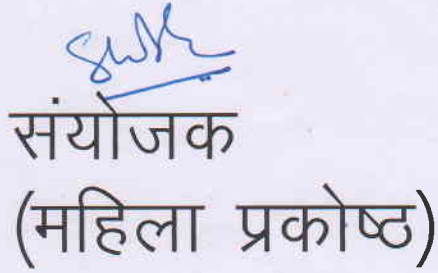 संयोजक
(महिला प्रकोष्ठ)